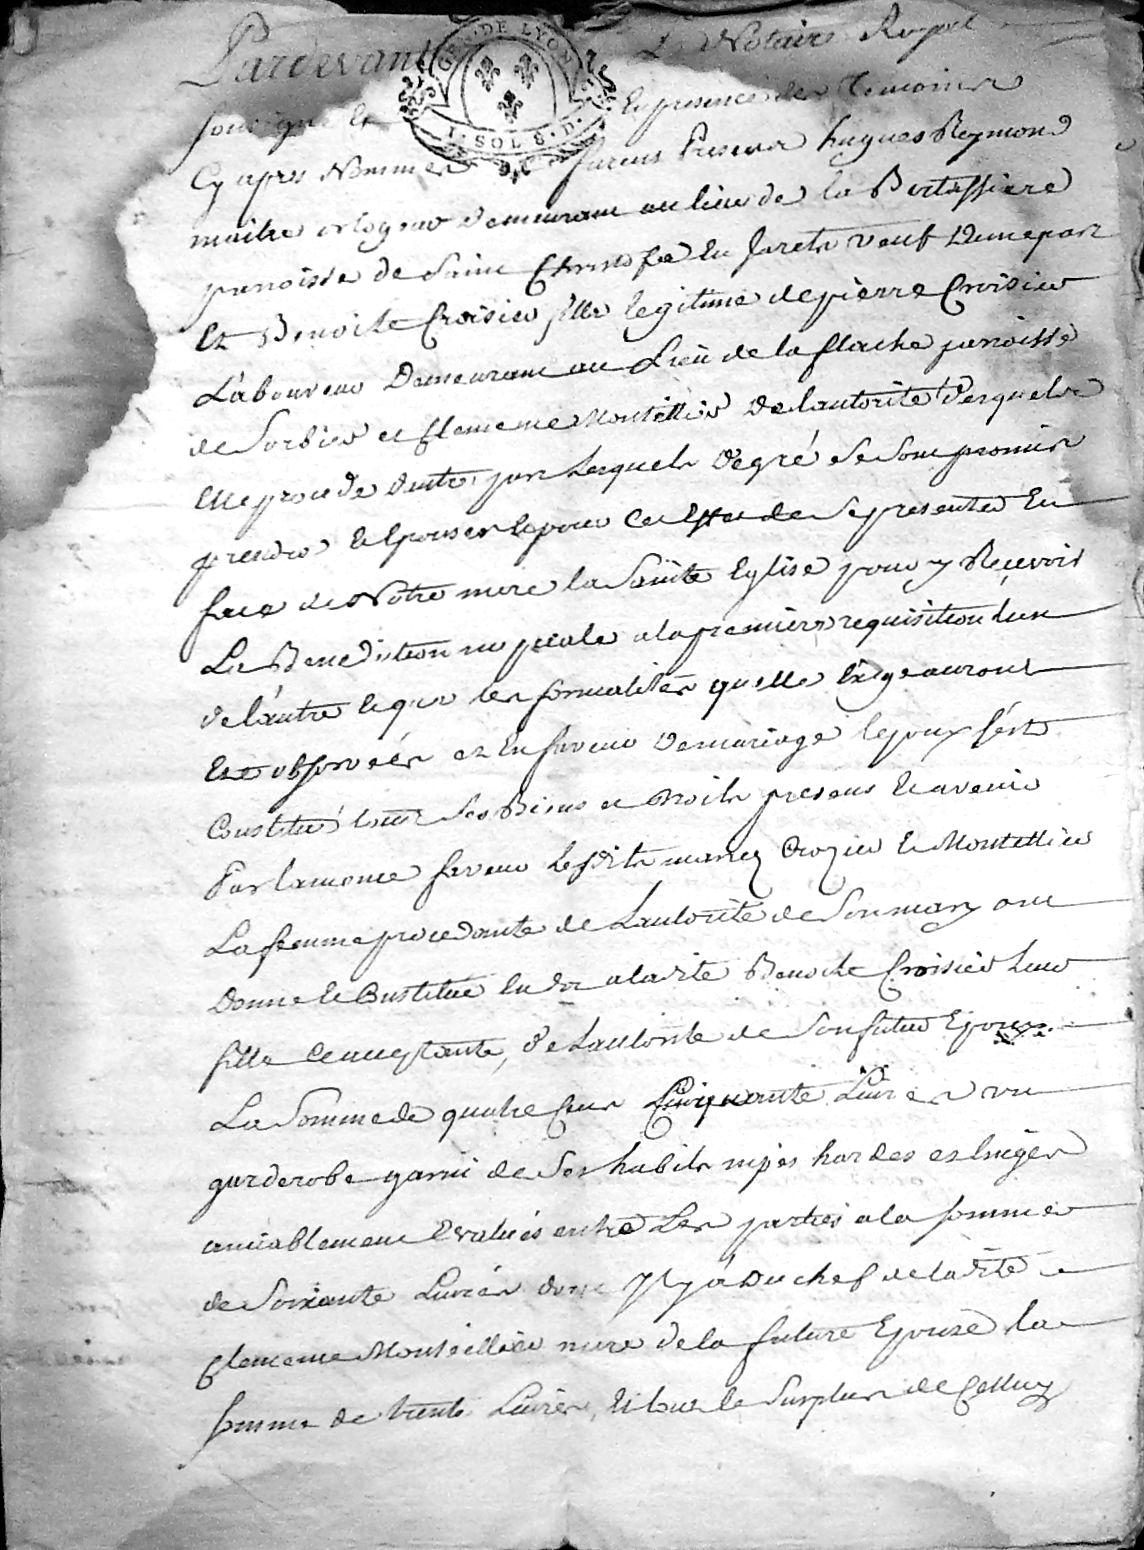 Pardevant Le Notaire Royal
GEN. DE LYON
I. SOL 8. D.
soussigné Et En presence des Temoins
Cy apres Nommes furent Presens hugues Reymond
maitre orlogeur demeurant au lieu de la Bertassiere
paroisse de Saint Christofle En Jarets veuf D'une part
Et Benoite Croisier fille legitime de pierre Croisier
Laboureur Demeurant au Lieu de la flache paroisse
de Sorbier et Clemence Montellier De lautorité Desquels
Elle procede d'autre part Lesquels De gré se sont promis
prendre et Epouser Epour Cet Effet de Se presenter En
face de Notre mere la Sainte Eglise pour y Reçevoir
La Benediction nuptiale a la premiere requisition Lun
de l'autre les formalités quelle Exige auront
Eté observées et En faveur De mariage lepoux sést
Constitué tous Ses Biens et Droits presens Et avenir
Par la meme faveur lesdits mariez Crozier Et Montellier
La femme procedante de Lautorité de Son mary ont
Donné Et Constitué En dot a ladite Benoite Croisier Leur
fille Cy acceptante, de Lautorité de Son futur Epoux
La Somme de quatre Cens Cinquante Livres un
garderobe garni de Ses habits nipes hardes et linges
amiablement Evalués entre Les parties a la somme
de Soixante Livres dont Il y á Du chef de ladite
Clemence Montellier mere de la future Epouse la
somme de trente Livres, Et tout le Surplus de Celluy